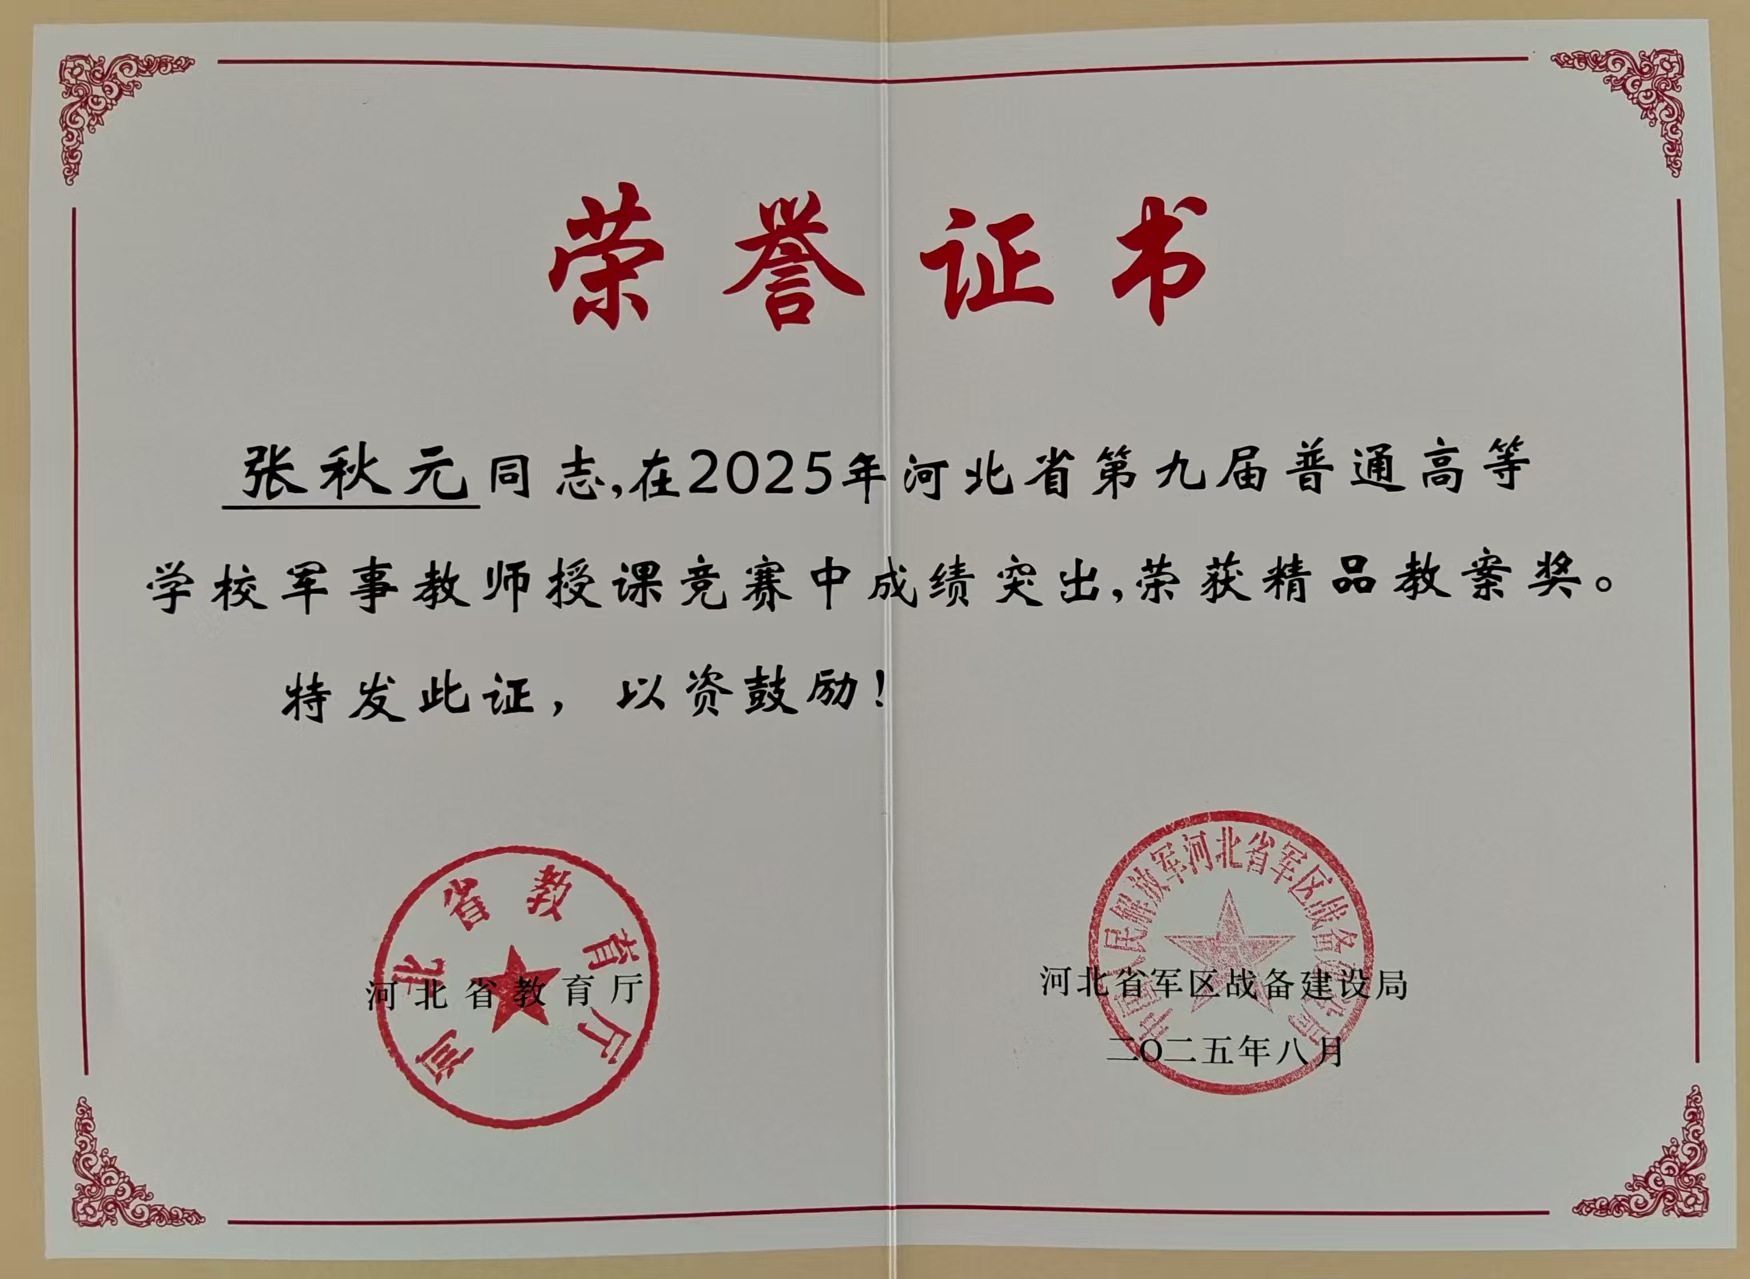 荣誉证书
张秋元同志,在2025年河北省第九届普通高等
学校军事教师授课竞赛中成绩突出,荣获精品教案奖。
特发此证，以资鼓励!
河北省教育厅
河北省教育厅
中国人民解放军河北省军区战备建设局
河北省军区战备建设局
二〇二五年八月